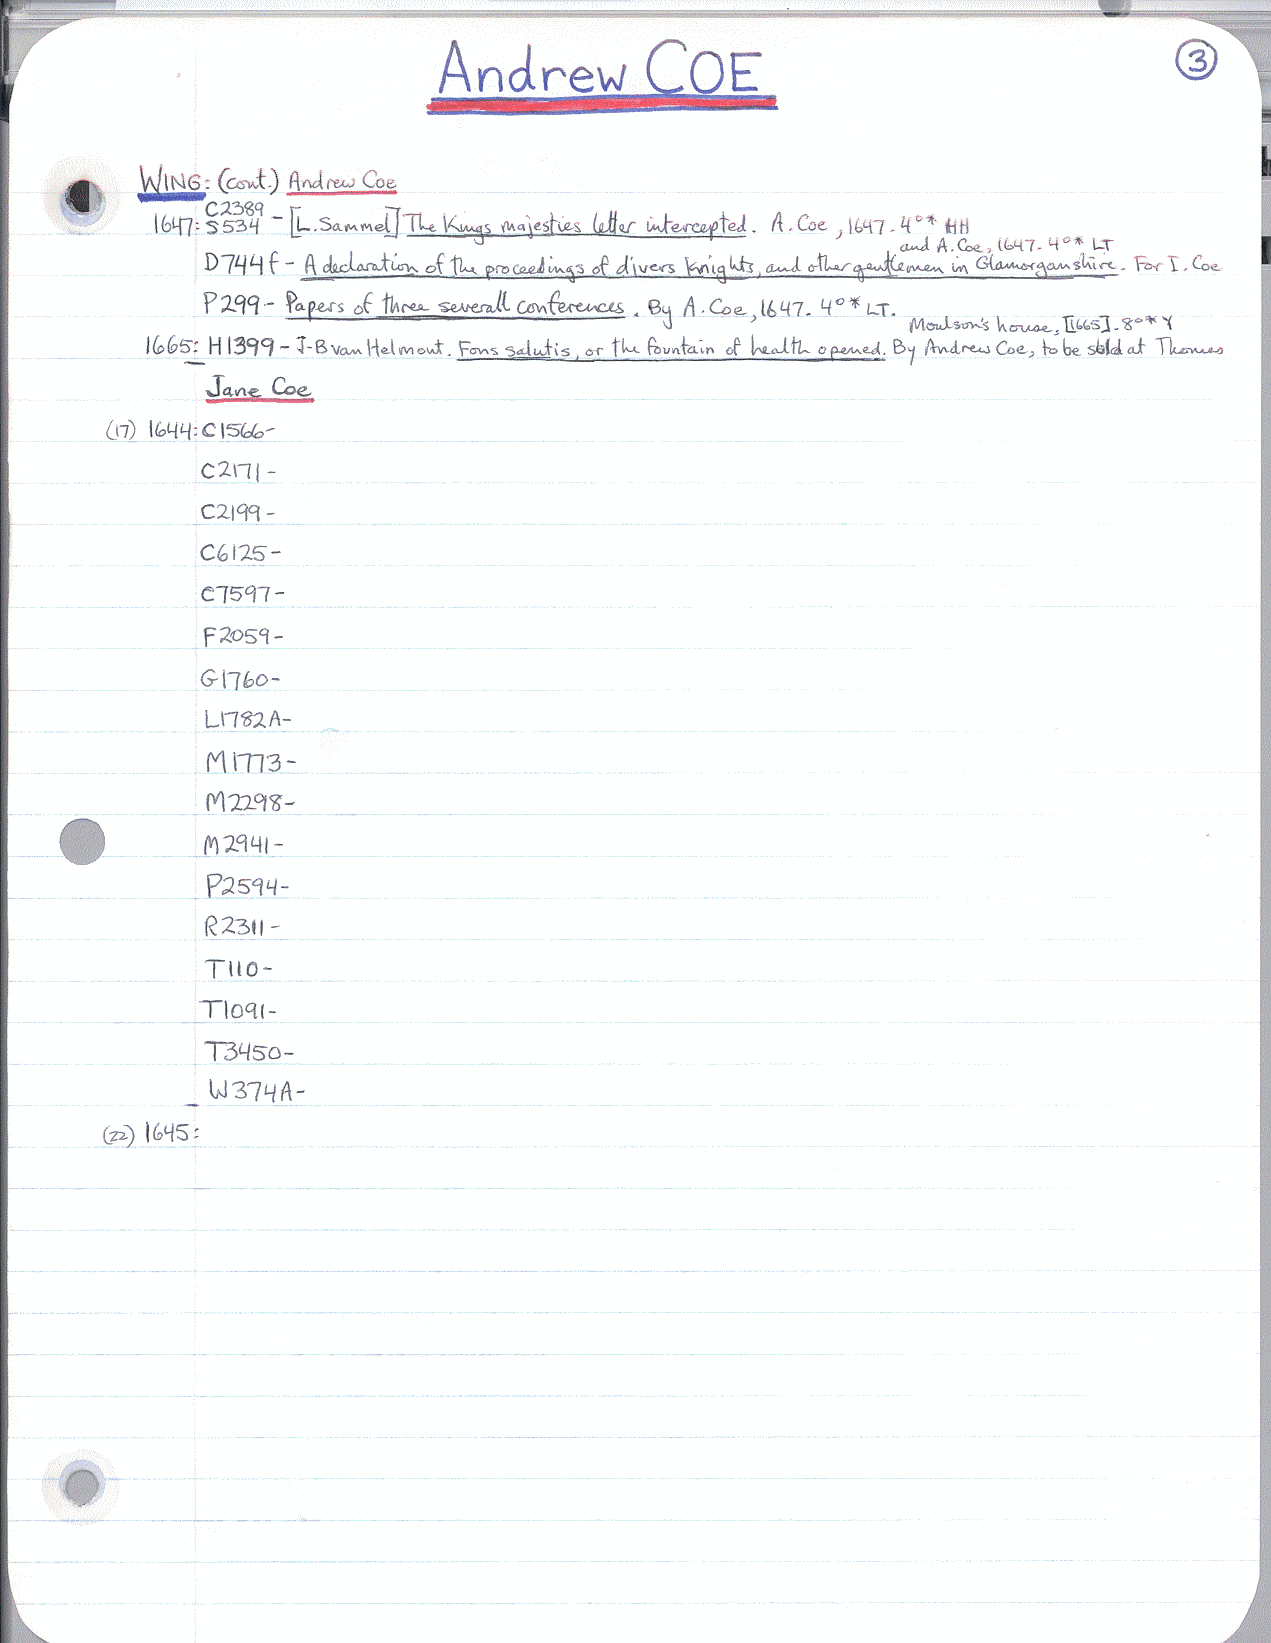 Andrew COE
3
WING: (cont.) Andrew Coe
C2389
1647: S534 - [L. Sammel] The Kings majesties letter intercepted. A. Coe, 1647. 4°* HH
and A. Coe, 1647. 4°* LT
D744f - A declaration of the proceedings of divers knights, and other gentlemen in Glamorganshire. For I. Coe
P299 - Papers of three severall conferences. By A. Coe, 1647. 4°* LT.
Moulson's house, [1665]. 8°* Y
1665: H1399 - J-B van Helmont. Fons salutis, or the fountain of health opened. By Andrew Coe, to be sold at Thomas
Jane Coe
(17) 1644: C1566-
C2171-
C2199-
C6125-
C7597-
F2059-
G1760-
L1782A-
M1773-
M2298-
M2941-
P2594-
R2311-
T110-
T1091-
T3450-
W374A-
(22) 1645: